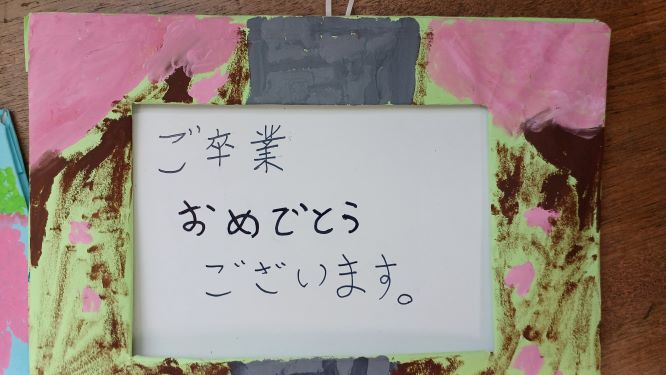 ご卒業
おめでとう
ございます。